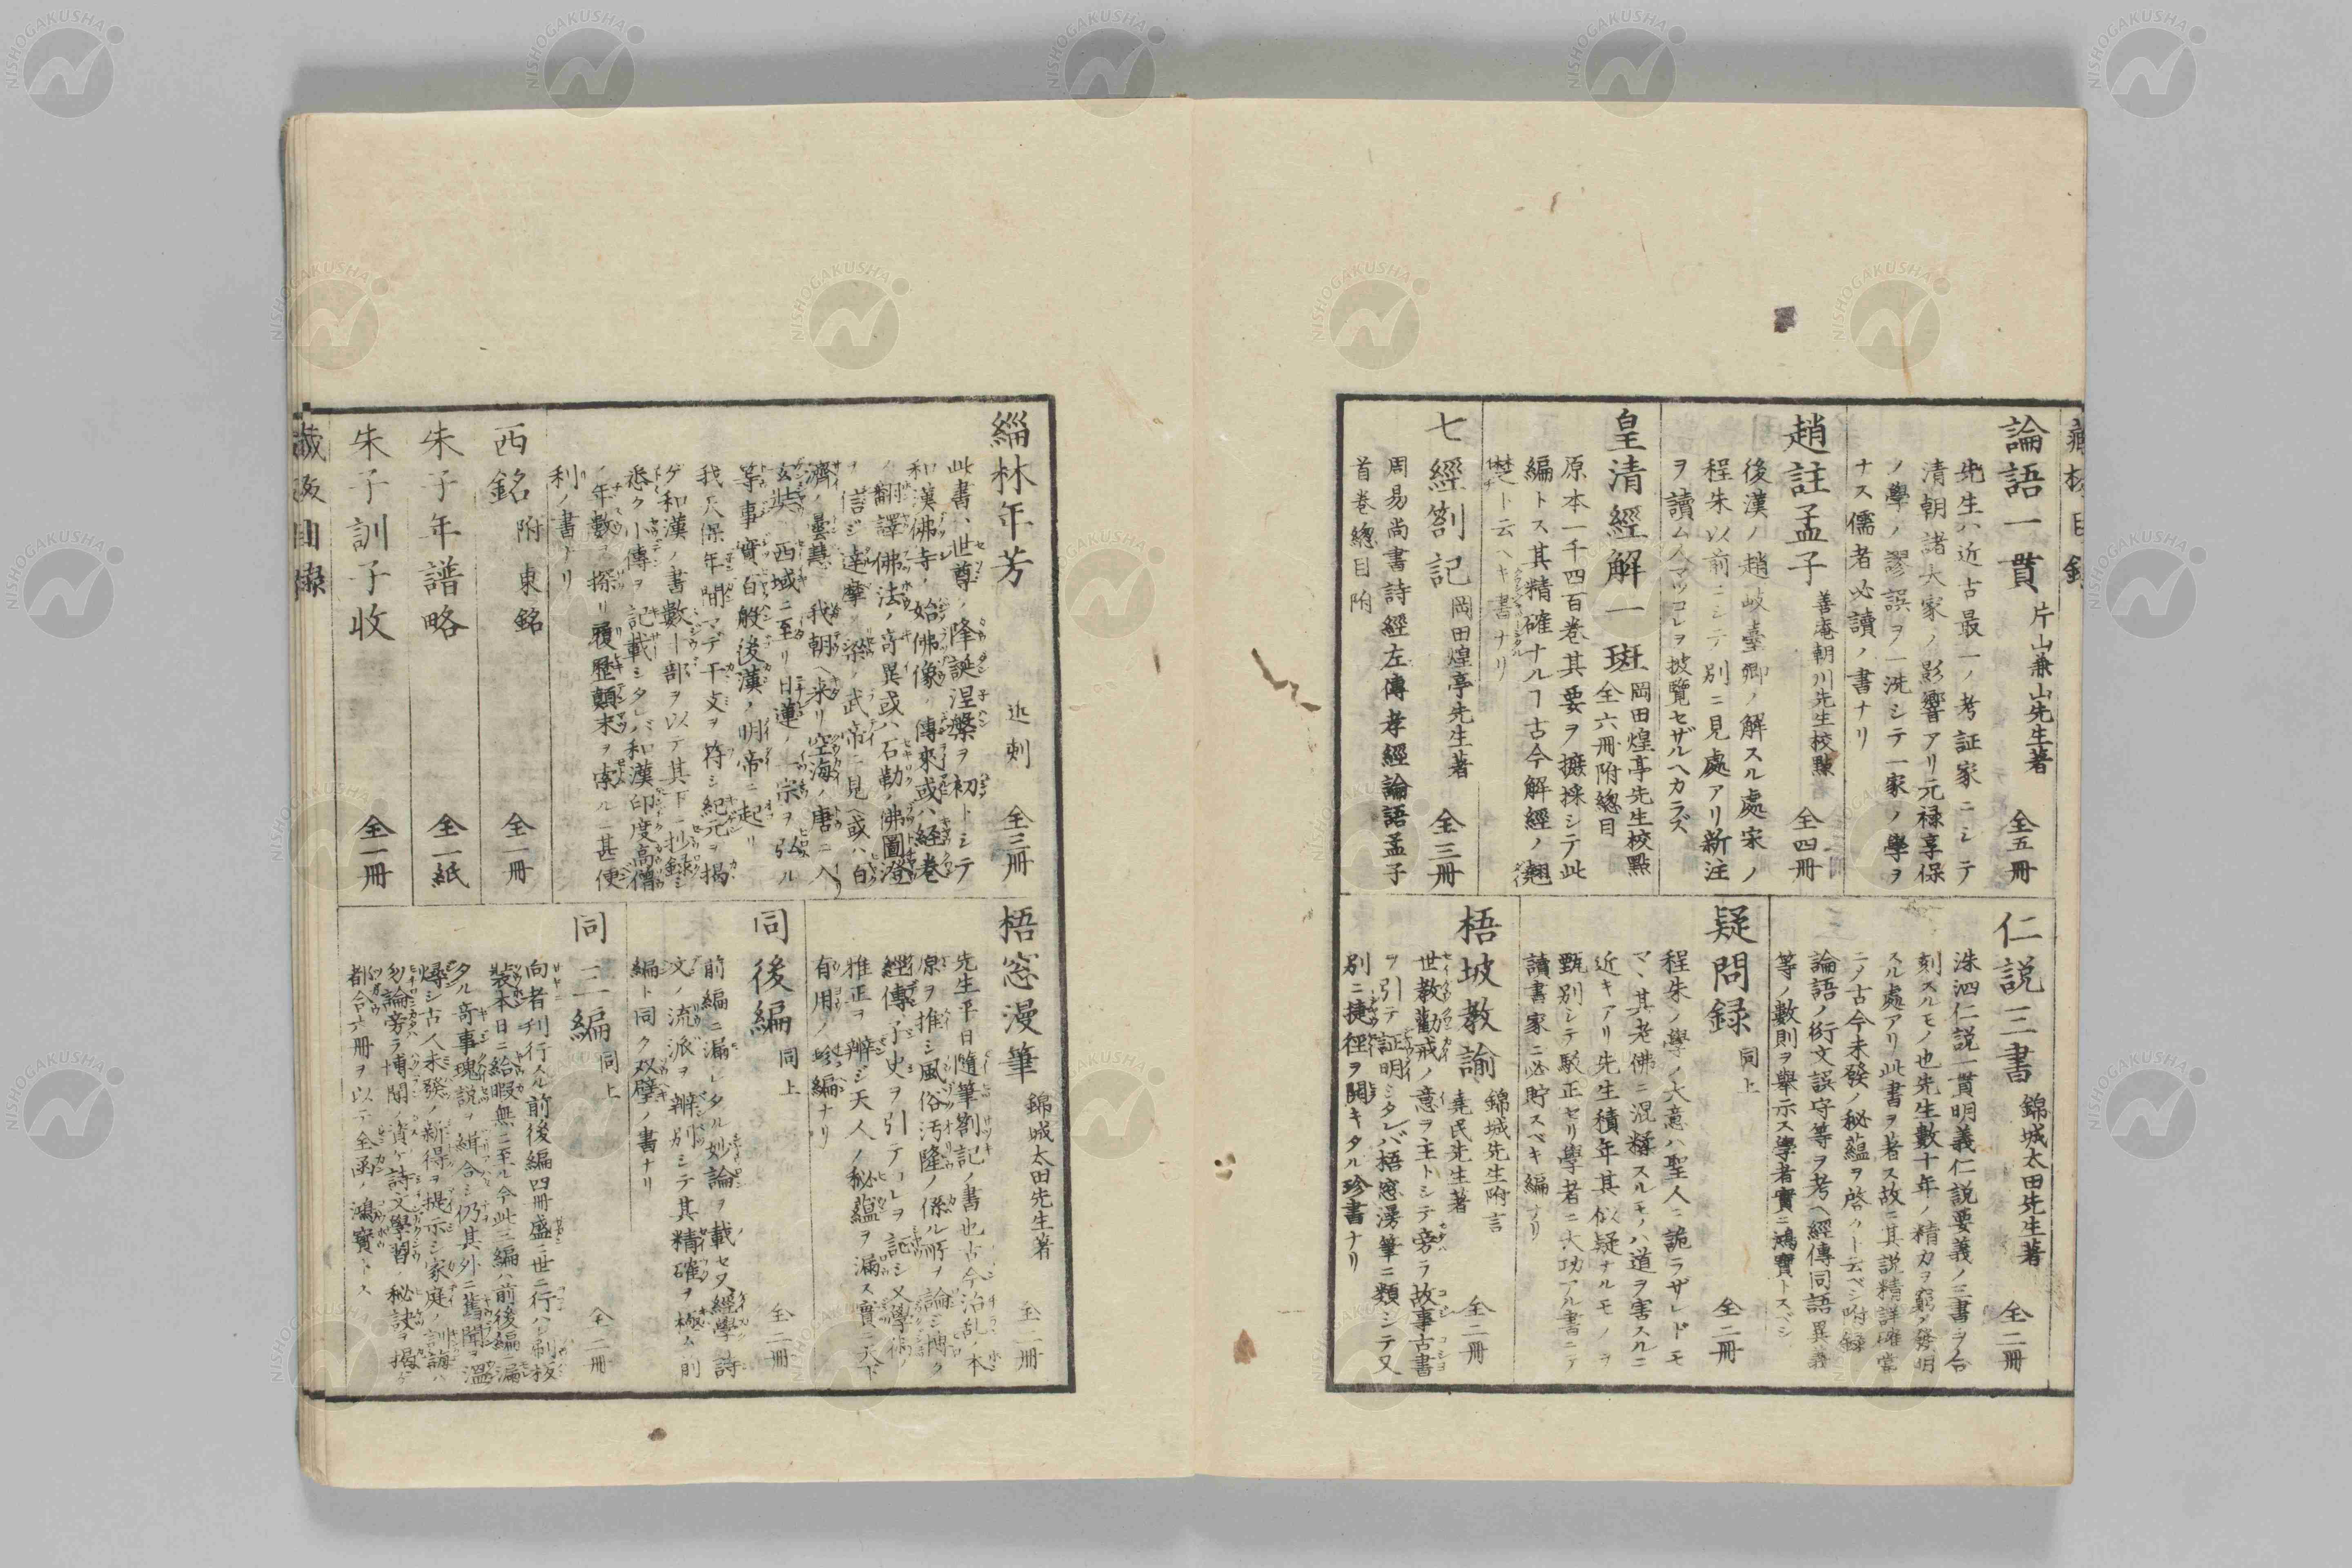 論語一貫 片山兼山先生著 全五冊
先生ハ近古最一ノ考証家ニシテ
清朝諸大家ノ影響アリ元禄享保
ノ學ノ謬誤ヲ一洗シテ一家ノ學ヲ
ナス儒者必讀ノ書ナリ
趙註孟子 善庵朝川先生校點 全四冊
後漢ノ趙岐臺卿ノ解スル處宋ノ
程朱以前ニシテ別ニ見處アリ新注
ヲ讀ム人マヅコレヲ披覽セザルヘカラズ
皇清經解一斑 岡田煌亭先生校點 全六冊附總目
原本一千四百巻其要ヲ摭採シテ此
編トス其精確ナルヿ古今解經ノ翹
楚ト云ヘキ書ナリ
七經劄記 岡田煌亭先生著 全三冊
周易尚書詩經左傳孝經論語孟子
首巻總目附
仁説三書 錦城太田先生著 全二冊
洙泗仁説一貫明義仁説要義ノ三書ヲ合
刻スルモノ也先生數十年ノ精力ヲ窮メ發明
スル處アリ此書ヲ著ス故ニ其説精詳確當
ニノ古今未發ノ秘蘊ヲ啓クト云ベシ附録
論語ノ衍文誤守等ヲ考ヘ經傳同語異義
等ノ數則ヲ擧示ス學者實ニ鴻寶トスベシ
疑問録 同上 全二冊
程朱ノ學ノ大意ハ聖人ニ詭ラザレドモ
マヽ其老佛ニ混糅スルモノハ道ヲ害スルニ
近キアリ先生積年其似疑ナルモノヲ
甄別シテ駁正セリ學者ニ大功アル書ニテ
讀書家ニ必貯スベキ編ナリ
梧坡教諭 錦城先生附言 堯民先生著 全二冊
世教勸戒ノ意ヲ主トシテ旁ラ故事古書
ヲ引テ証明シタレバ梧窓漫筆ニ類シテ又
別ニ捷径ヲ開キタル珍書ナリ
緇林年芳 近刺 全三冊
此書ハ世尊ノ降誕涅槃ヲ初トシテ
和漢佛寺ノ始佛像ノ傳來或ハ経巻
ノ翻譯佛法ノ奇異或ハ石勒ノ佛圖澄
ヲ信ジ達摩ノ梁ノ武帝ニ見ヘ或ハ百
濟ノ曇慧我朝ヘ来リ空海ノ唐ニ入
玄奘ノ西域ニ至リ日蓮ノ一宗ヲ弘ル
等事實百般後漢ノ明帝ニ起リ
我天保年間マデ干支ヲ符シ紀元ヲ揭
ゲ和漢ノ書數十部ヲ以テ其下ニ抄録シ
悉ク小傳ヲ記載シタレバ和漢印度高僧
ノ年數ヲ探リ履歴顛末ヲ索ルニ甚便
利ノ書ナリ
西銘 附東銘 全一冊
朱子年譜略 全一紙
朱子訓子收 全一冊
梧窓漫筆 錦城太田先生著 全二冊
先生平日隨筆劄記ノ書也古今治乱ノ本
原ヲ推シ風俗汚隆ノ係ル所ヲ論シ博ク
經傳子史ヲ引テコレヲ証シ又學術ノ
雅正ヲ辨ジ天人ノ秘蘊ヲ漏ス實ニ天下
有用ノ珍編ナリ
同後編 同上 全二冊
前編ニ漏レタル妙論ヲ載セ又經學詩
文ノ流派ヲ辨別シテ其精確ヲ極ム前
編ト同ク双璧ノ書ナリ
同三編 同上 全二冊
向者刊行スル前後編四冊盛ニ世ニ行ハレ刷板
裝本日ニ給暇無ニ至ル今此三編ハ前後編ニ漏
タル奇事瑰説ヲ緝合シ仍其外ニ舊聞ヲ溫
燖シ古人未發ノ新得ヲ提示シ家庭ノ訓誨ハ
勿論旁ラ博聞ノ資ケ詩文學習ノ秘訣ヲ揭グ
都合六冊ヲ以テ全函ノ鴻寶トス
藏板目録
NISHOGAKUSHA